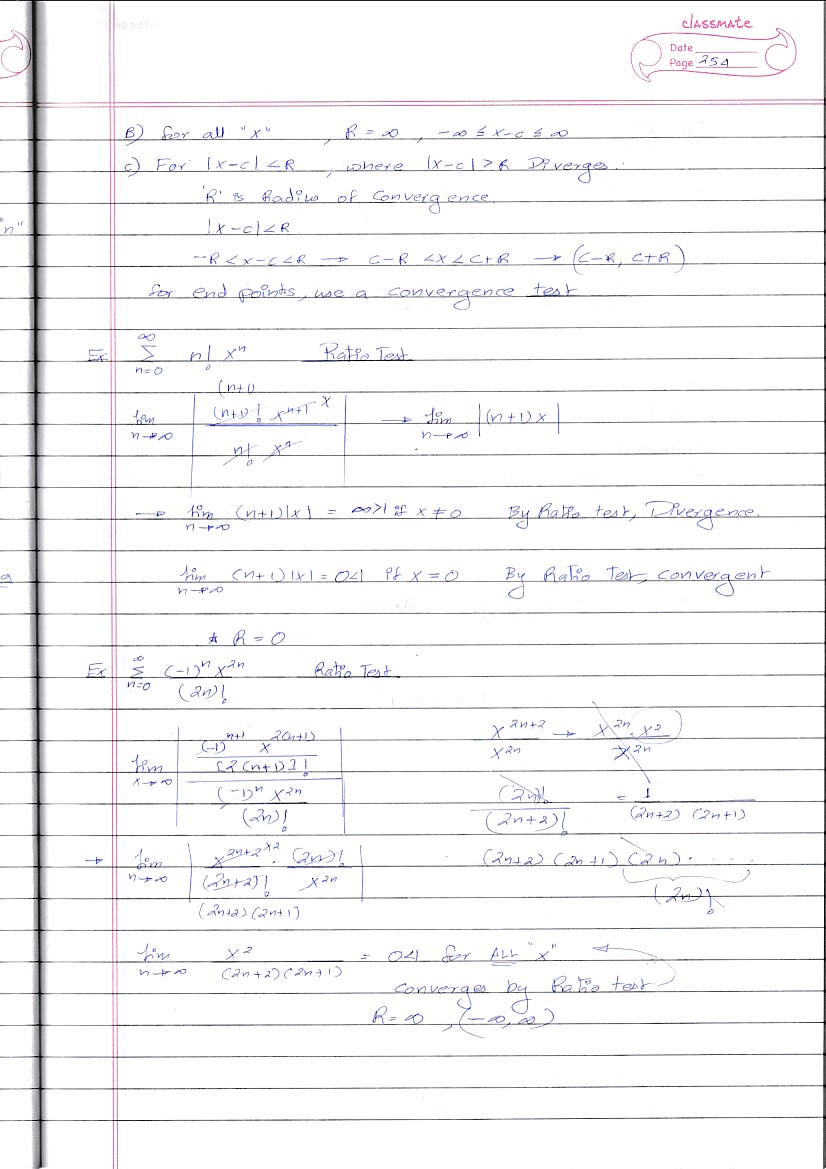 classmate
Date
Page 254
B) for all "x" , R = ∞ , -∞ ≤ x-c ≤ ∞
C) For |x-c| < R , where |x-c| > R Diverges.
'R' is Radius of Convergence.
n"
|x-c| < R
-R < x-c < R → C-R < x < C+R → (C-R, C+R)
for end points, use a convergence test
Ex ∞ Σ n=0 n! xⁿ Ratio Test
(n+1)
lim n→∞ | (n+1)! xⁿ⁺¹ x / n! xⁿ | → lim n→∞ |(n+1)x|
→ lim n→∞ (n+1)|x| = ∞>1 if x ≠ 0 By Ratio test, Divergence.
lim n→∞ (n+1)|x| = 0<1 if x = 0 By Ratio Test, convergent
* R = 0
Ex ∞ Σ n=0 (-1)ⁿ x²ⁿ / (2n)! Ratio Test
lim x→∞ | (-1)ⁿ⁺¹ x²⁽ⁿ⁺¹⁾ / [2(n+1)]! / (-1)ⁿ x²ⁿ / (2n)! |
x²ⁿ⁺² / x²ⁿ → x²ⁿ · x² / x²ⁿ
(2n)! / (2n+2)! = 1 / (2n+2) (2n+1)
→ lim n→∞ | x²ⁿ⁺² x² / (2n+2)! · (2n)! / x²ⁿ |
(2n+2) (2n+1)
(2n+2) (2n+1) (2n) · . . . .
(2n)!
lim n→∞ x² / (2n+2) (2n+1) = 0<1 for ALL "x"
converges by Ratio test
R = ∞ , (-∞, ∞)